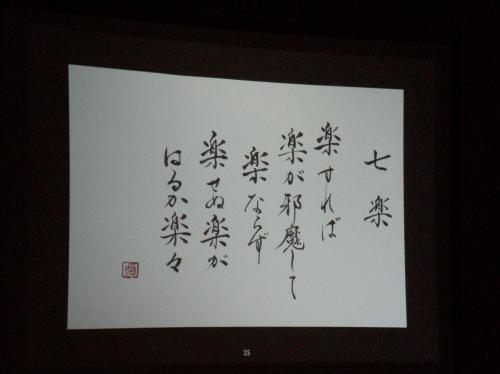 七楽
楽すれば
楽が邪魔して
楽ならず
楽せぬ楽が
はるか楽々
25